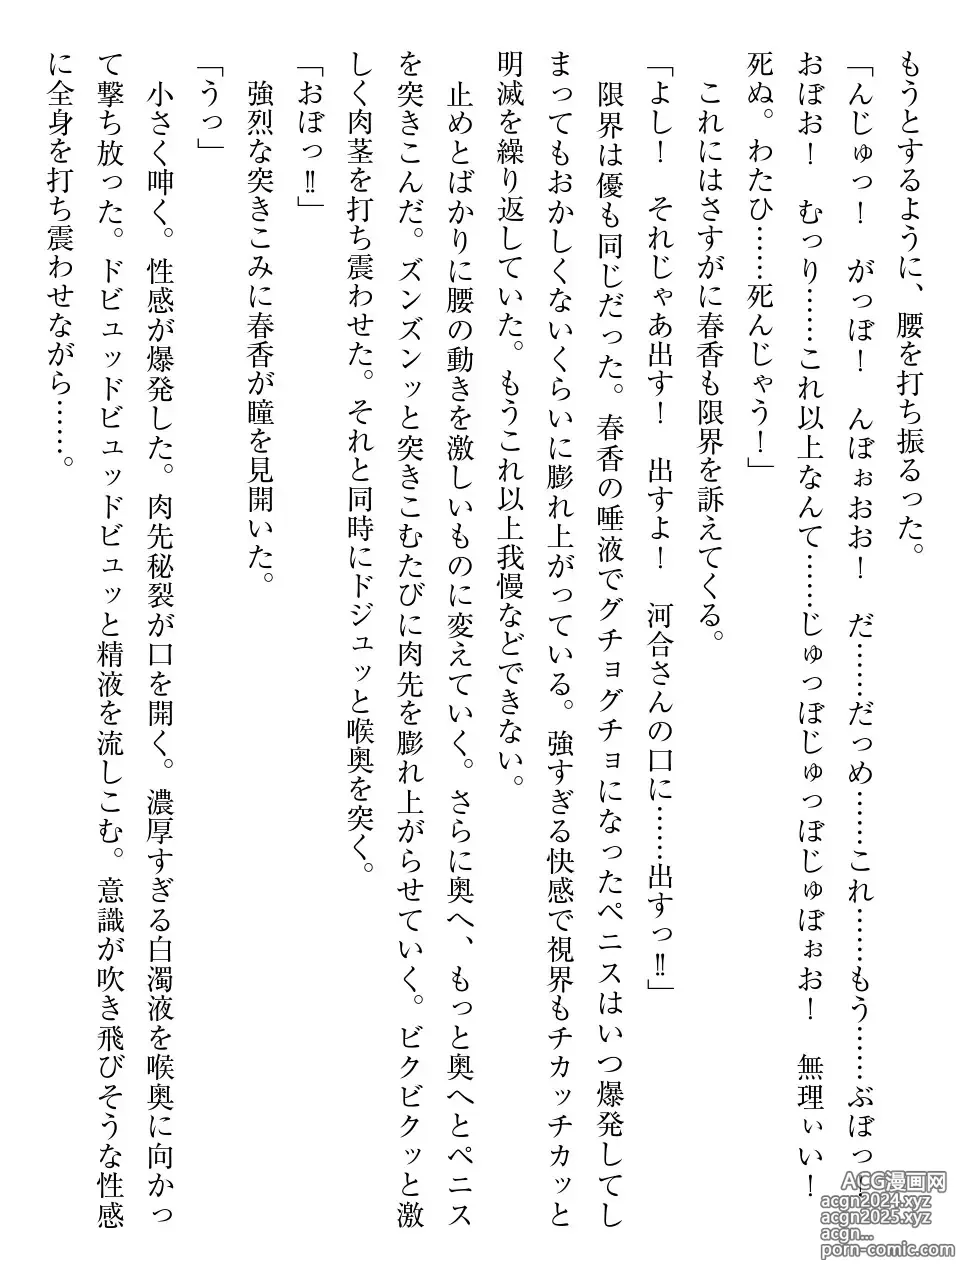 もうとするように、腰を打ち振るった。
「んじゅっ！　がっぼ！　んぼぉおお！　だ……だっめ……これ……もう……ぶぼっ！
おぼお！　むっり……これ以上なんて……じゅっぼじゅっぼじゅぼぉお！　無理ぃい！
死ぬ。わたひ……死んじゃう！」
　これにはさすがに春香も限界を訴えてくる。
「よし！　それじゃあ出す！　出すよ！　河合さんの口に……出すっ!!」
　限界は優も同じだった。春香の唾液でグチョグチョになったペニスはいつ爆発してし
まってもおかしくないくらいに膨れ上がっている。強すぎる快感で視界もチカッチカッと
明滅を繰り返していた。もうこれ以上我慢などできない。
　止めとばかりに腰の動きを激しいものに変えていく。さらに奥へ、もっと奥へとペニス
を突きこんだ。ズンズンッと突きこむたびに肉先を膨れ上がらせていく。ビクビクッと激
しく肉茎を打ち震わせた。それと同時にドジュッと喉奥を突く。
「おぼっ!!」
　強烈な突きこみに春香が瞳を見開いた。
「うっ」
　小さく呻く。性感が爆発した。肉先秘裂が口を開く。濃厚すぎる白濁液を喉奥に向かっ
て撃ち放った。ドビュッドビュッドビュッと精液を流しこむ。意識が吹き飛びそうな性感
に全身を打ち震わせながら……。
ACG漫画网
acgn2024.xyz
acgn2025.xyz
acgn...
porn-comic.com